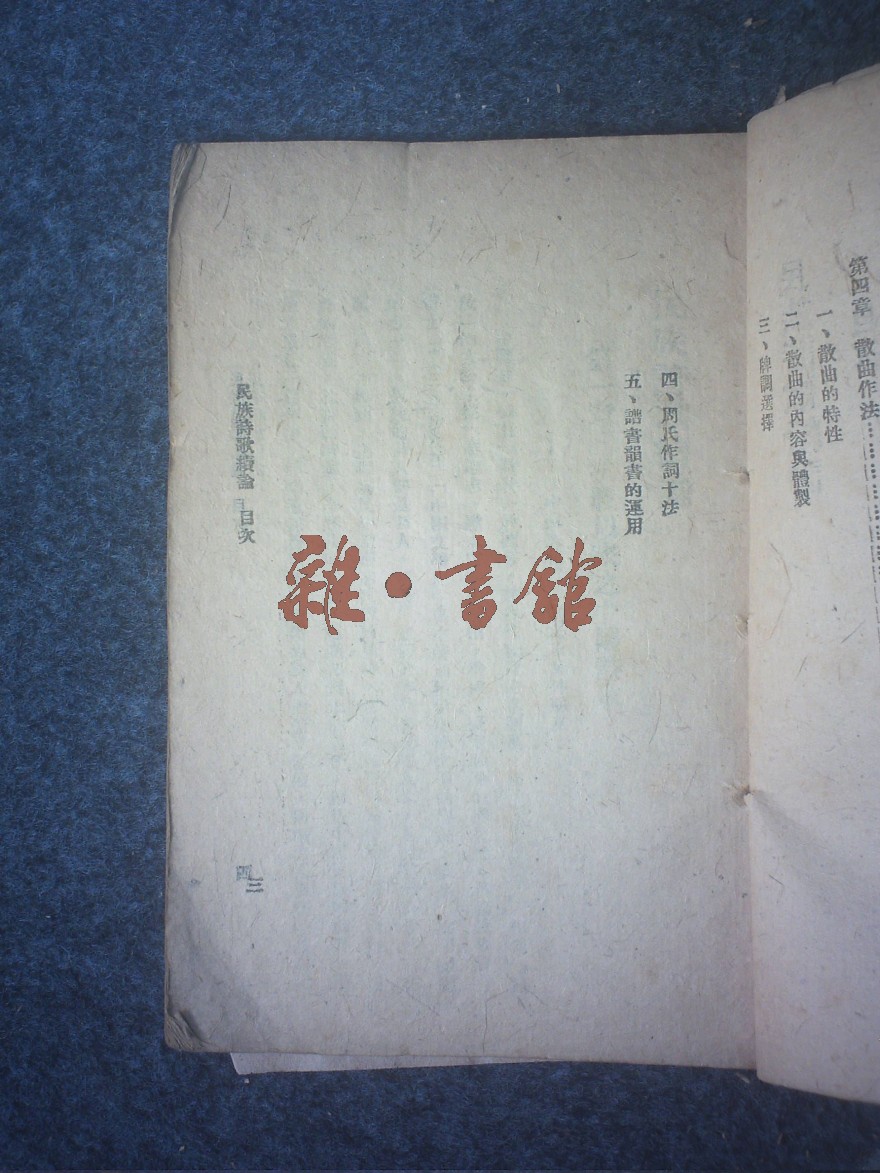 第四章 散曲作法
一、散曲的特性
二、散曲的內容與體製
三、牌調選擇
四、周氏作詞十法
五、譜書韻書的運用
民族詩歌續論 目次
三
雜·書館